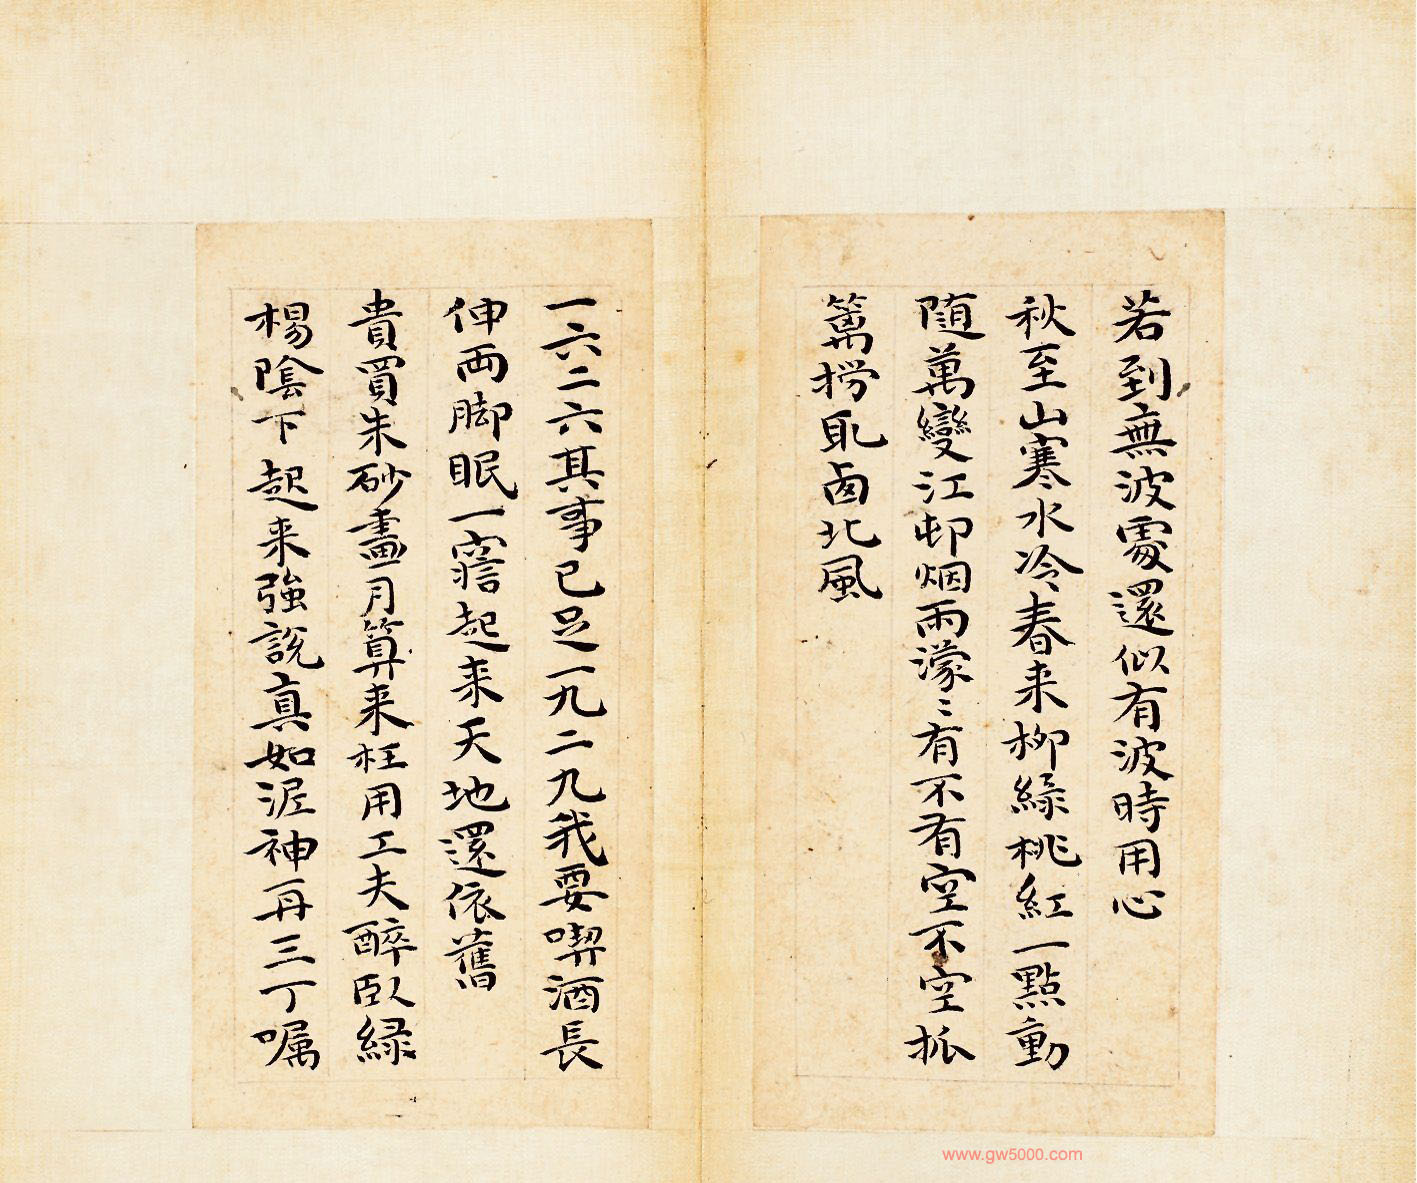 若到無波處還似有波時用心
秋至山寒水冷春来柳緑桃紅一點動
随萬變江邨烟雨濛〻有不有空不空
笊籬撈取西北風
一六二六其事已足一九二九我要喫酒長
伸両脚眠一寤起来天地還依舊
貴買朱砂畫月算来枉用工夫醉臥緑
楊陰下起来強説真如泥神再三丁嘱
www.gw5000.com